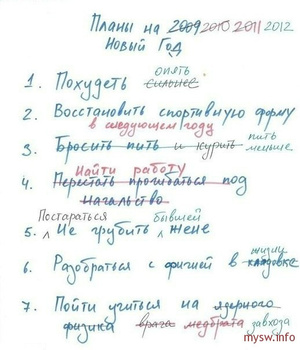 Планы на 2009 2010 2011 2012
Новый Год
опять
1. Похудеть сильнее
2. Восстановить спортивную форму
в следующем году
пить
3. Бросить пить и курить меньше
Найти работу
4. Перестать прогибаться под
начальство
Постараться бывшей
5. Не грубить жене
жизни
6. Разобраться с фигнёй в кладовке
7. Пойти учиться на ядерного
физика врача медбрата завхоза
mysw.info